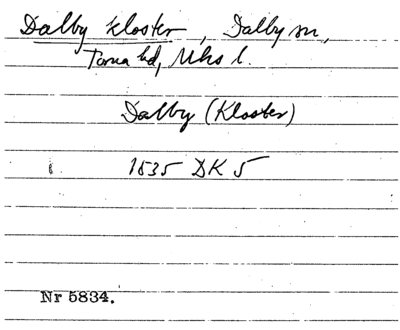 Dalby kloster, Dalby sn,
Torna hd, Mhs l.
Dalby (Kloster)
1535 DK 5
Nr 5834.